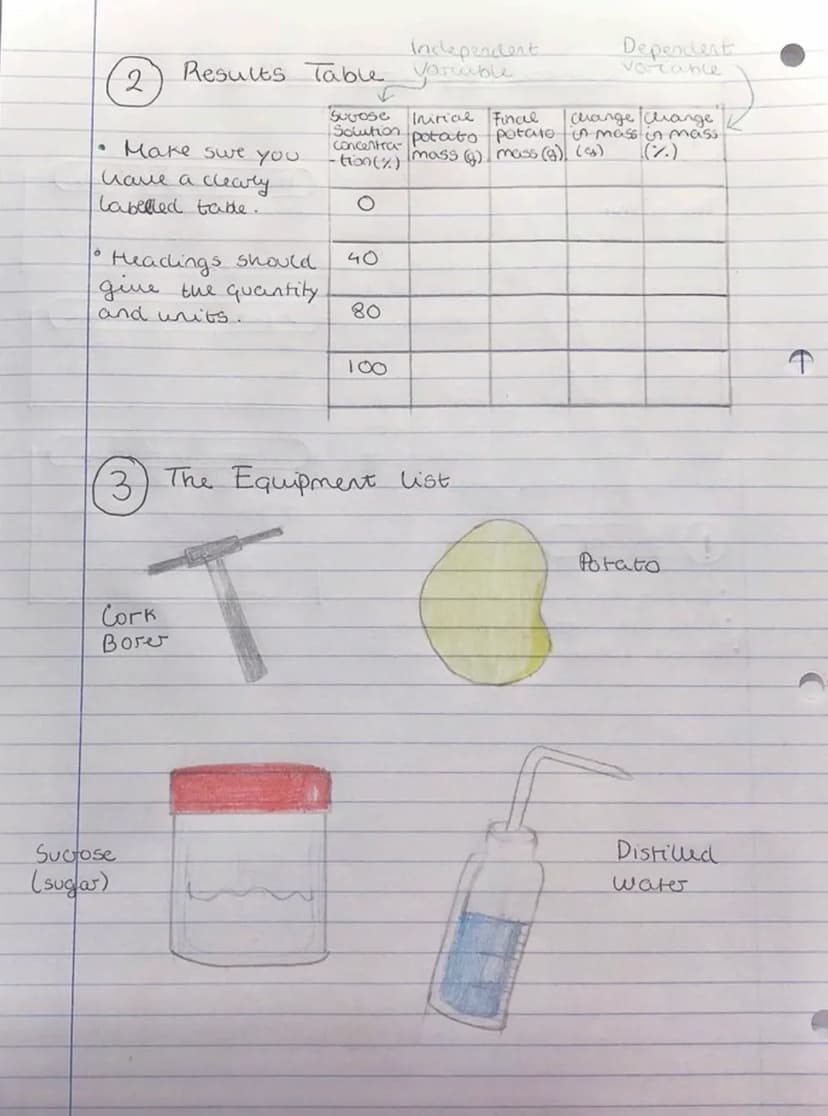 Independent
Variable
Dependent
variable
2 Results Table
• Make sure you
have a clearly
labelled table.
• Headings should
give the quantity
and units.
Sucrose
Solution
concentra-
-tion (%)
Initial
potato
mass (g)
Final
potato
mass (g)
change
in mass
(g)
change
in mass
(%)
0
40
80
100
3 The Equipment list
Cork
Borer
Potato
Sucrose
(sugar)
Distilled
water